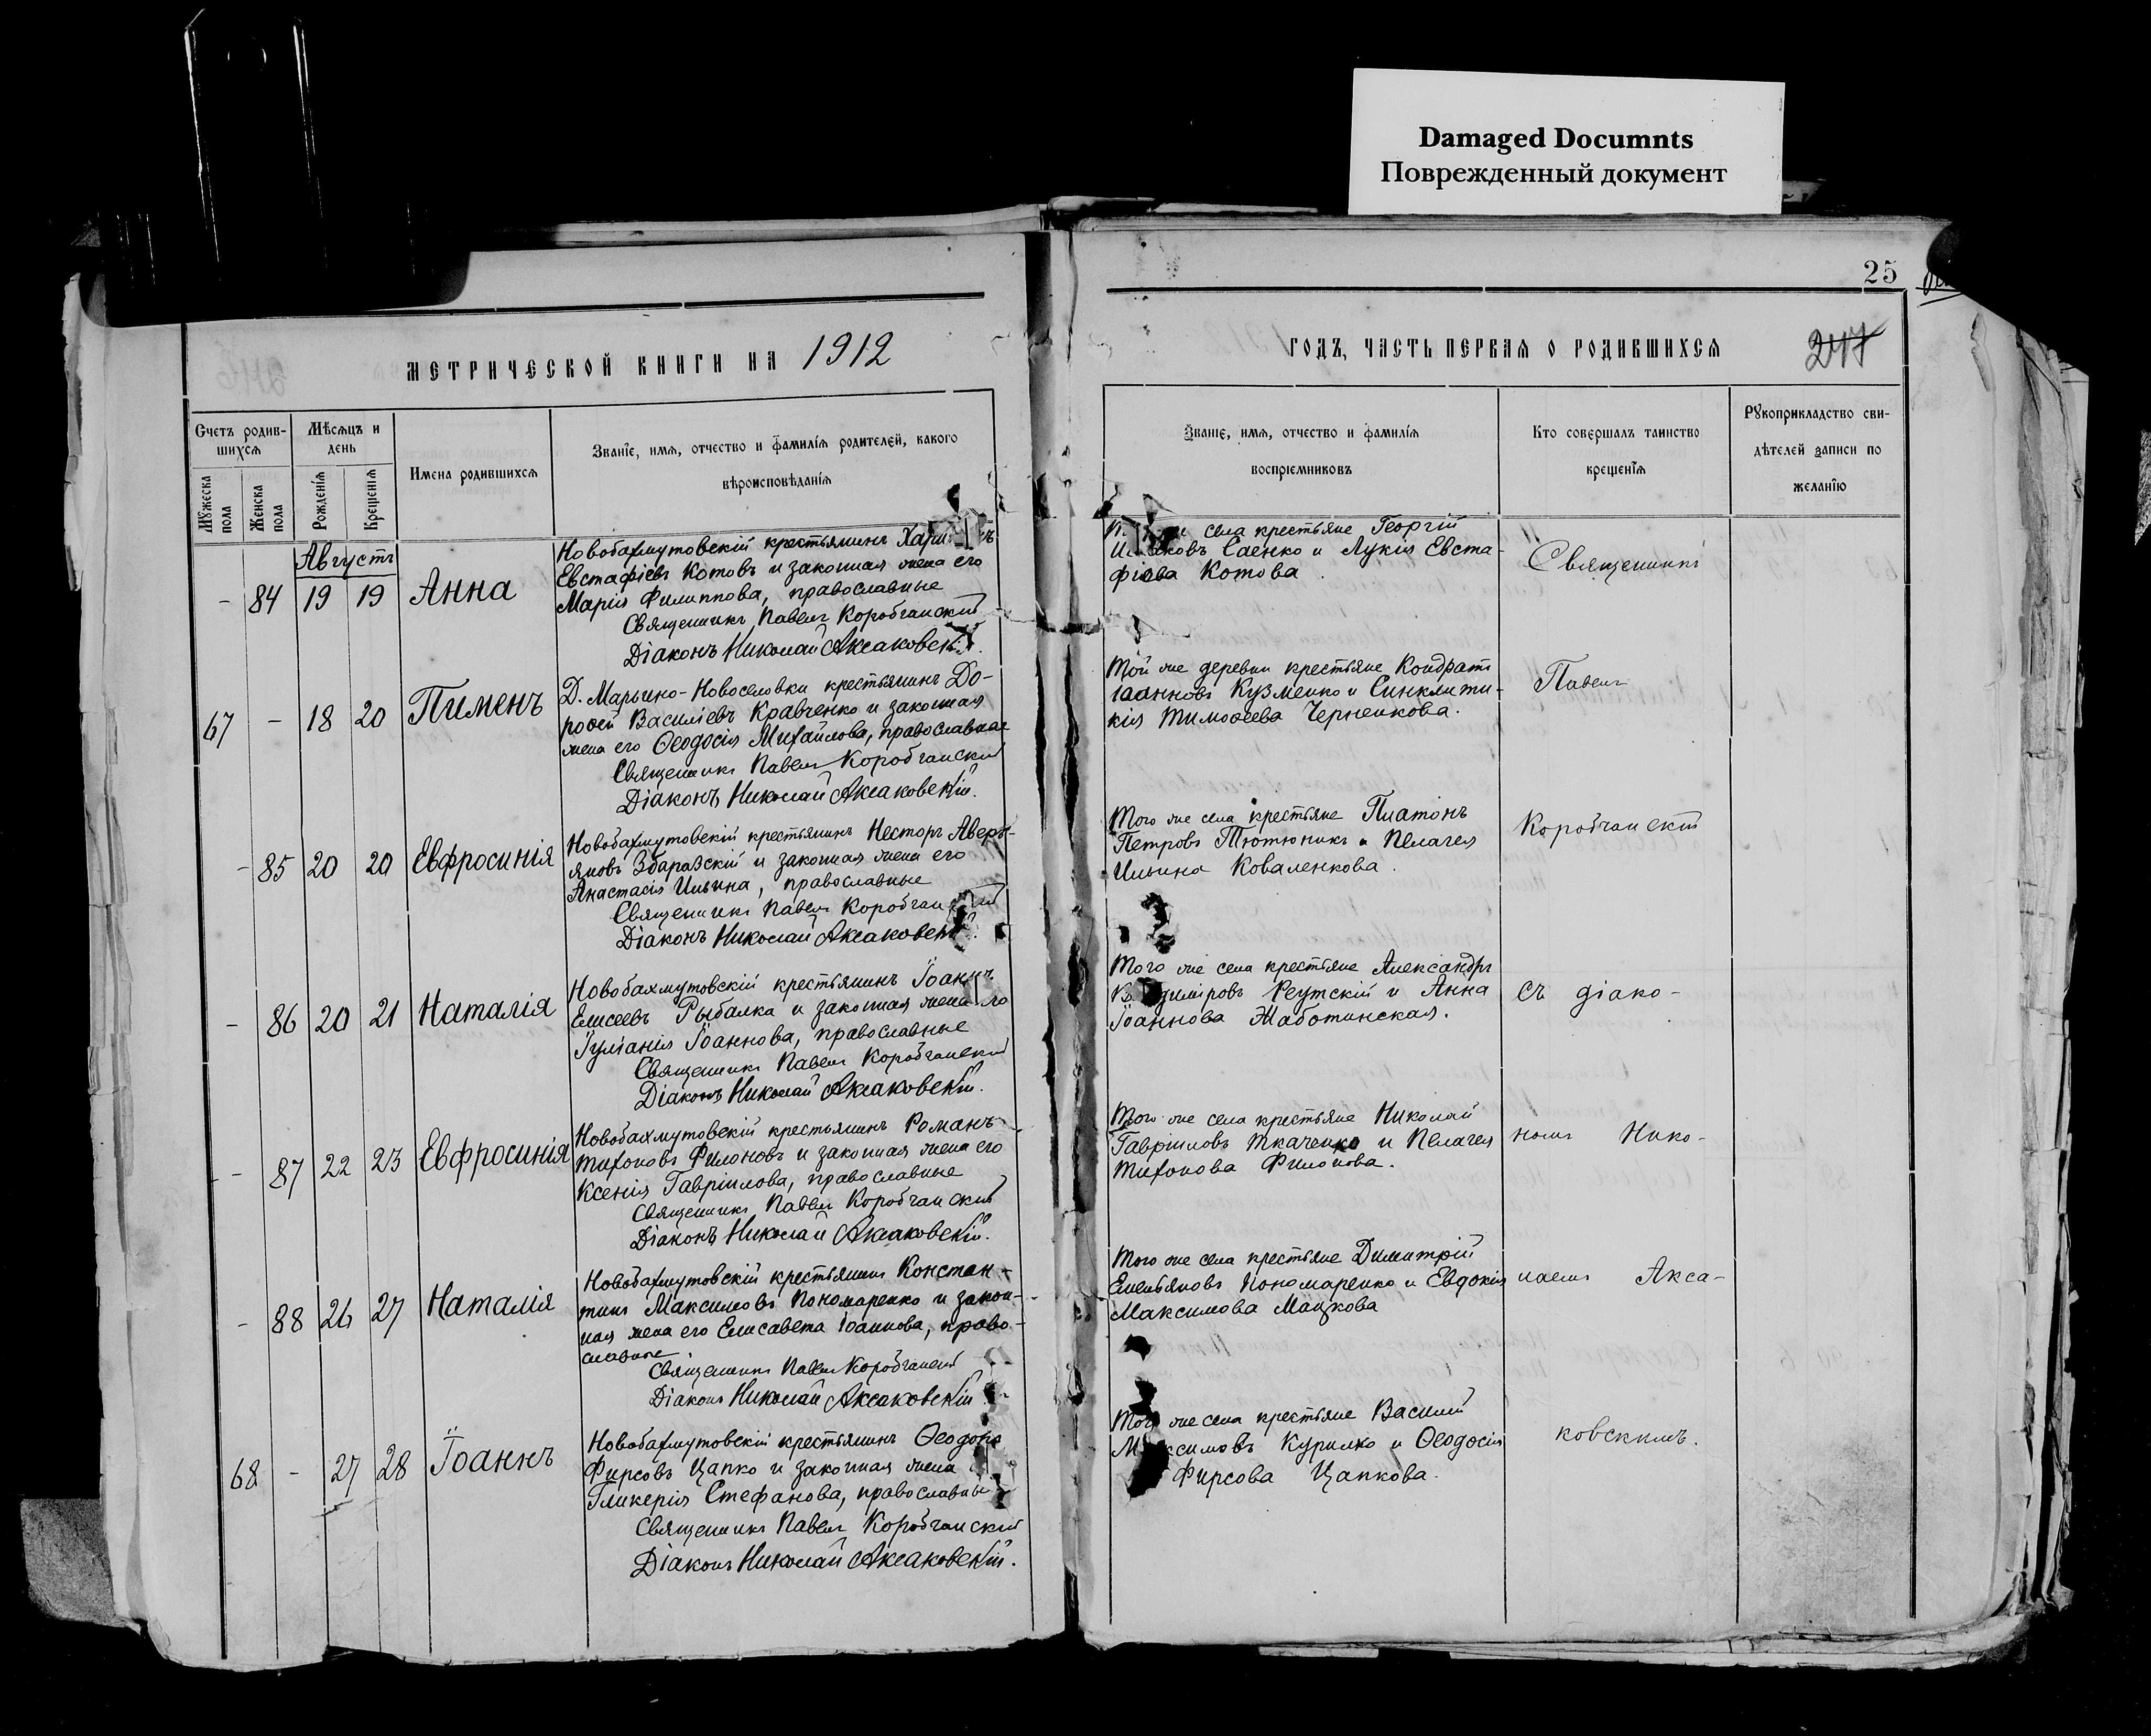 Damaged Documnts
Поврежденный документ
25
МЕТРИЧЕСКОЙ КНИГИ НА 1912
Счетъ родив-
шихся
Мѣсяцъ и
день
Имена родившихся
Званіе, имя, отчество и фамилія родителей, какого
вѣроисповѣданія
Мужеска пола
Женска пола
Рожденія
Крещенія
Августъ
- 84 19 19 Анна
Новобахмутовскій крестьянинъ
Евстафіевъ Котовъ и законная жена его
Марія Филиппова, православные
Священникъ Павелъ Коробчанскій
Діаконъ Николай Аксаковскій.
67 - 18 20 Пименъ
Д. Марьино-Новоселовки крестьянинъ До-
роѳей Василіевъ Кравченко и законная
жена его Ѳеодосія Михайлова, православные
Священникъ Павелъ Коробчанскій
Діаконъ Николай Аксаковскій.
- 85 20 20 Евфросинія
Новобахмутовскій крестьянинъ Несторъ Аверь-
яновъ Збаразскій и законная жена его
Анастасія Ильина, православные
Священникъ Павелъ Коробчанскій
Діаконъ Николай Аксаковскій.
- 86 20 21 Наталія
Новобахмутовскій крестьянинъ Іоаннъ
Елисеевъ Рыбалка и законная жена его
Іуліанія Іоаннова, православные
Священникъ Павелъ Коробчанскій
Діаконъ Николай Аксаковскій.
- 87 22 23 Евфросинія
Новобахмутовскій крестьянинъ Романъ
Тихоновъ Филоновъ и законная жена его
Ксенія Гавріилова, православные
Священникъ Павелъ Коробчанскій
Діаконъ Николай Аксаковскій.
- 88 26 27 Наталія
Новобахмутовскій крестьянинъ Констан-
тинъ Максимовъ Пономаренко и закон-
ная жена его Елисавета Іоаннова, право-
славные
Священникъ Павелъ Коробчанскій
Діаконъ Николай Аксаковскій.
68 - 27 28 Іоаннъ
Новобахмутовскій крестьянинъ Ѳеодоръ
Фирсовъ Цапко и законная жена
Гликерія Стефанова, православные
Священникъ Павелъ Коробчанскій
Діаконъ Николай Аксаковскій.
ГОДЪ, ЧАСТЬ ПЕРВАЯ О РОДИВШИХСЯ
247
Званіе, имя, отчество и фамилія
воспріемниковъ
Кто совершалъ таинство
крещенія
Рукоприкладство сви-
дѣтелей записи по
желанію
села крестьяне Георгій
Саенко и Лукія Евста-
фіева Котова.
Священникъ
Той же деревни крестьяне Кондратъ
Іоанновъ Кузменко и Синклити-
кія Тимоѳеева Черненкова.
Павелъ
Того же села крестьяне Платонъ
Петровъ Тютюникъ и Пелагея
Ильина Коваленкова.
Коробчанскій
Того же села крестьяне Александръ
Владиміровъ Реутскій и Анна
Іоаннова Жаботинская.
съ діако-
Того же села крестьяне Николай
Гавріиловъ Ткаченко и Пелагея
Тихонова Филонова.
номъ Нико-
Того же села крестьяне Димитрій
Емельяновъ Пономаренко и Евдокія
Максимова Мацкова
лаемъ Акса-
Того же села крестьяне Василій
Максимовъ Курилко и Ѳеодосія
Фирсова Цапкова.
ковскимъ.